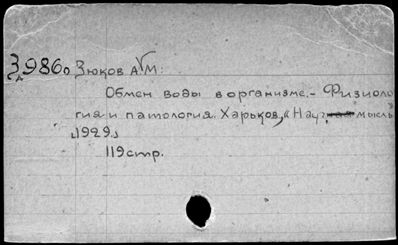 З 986о Зюков А.М.
Обмен воды в организме.- Физиоло
гия и патология. Харьков, "Науч мысль"
1929.
119 стр.